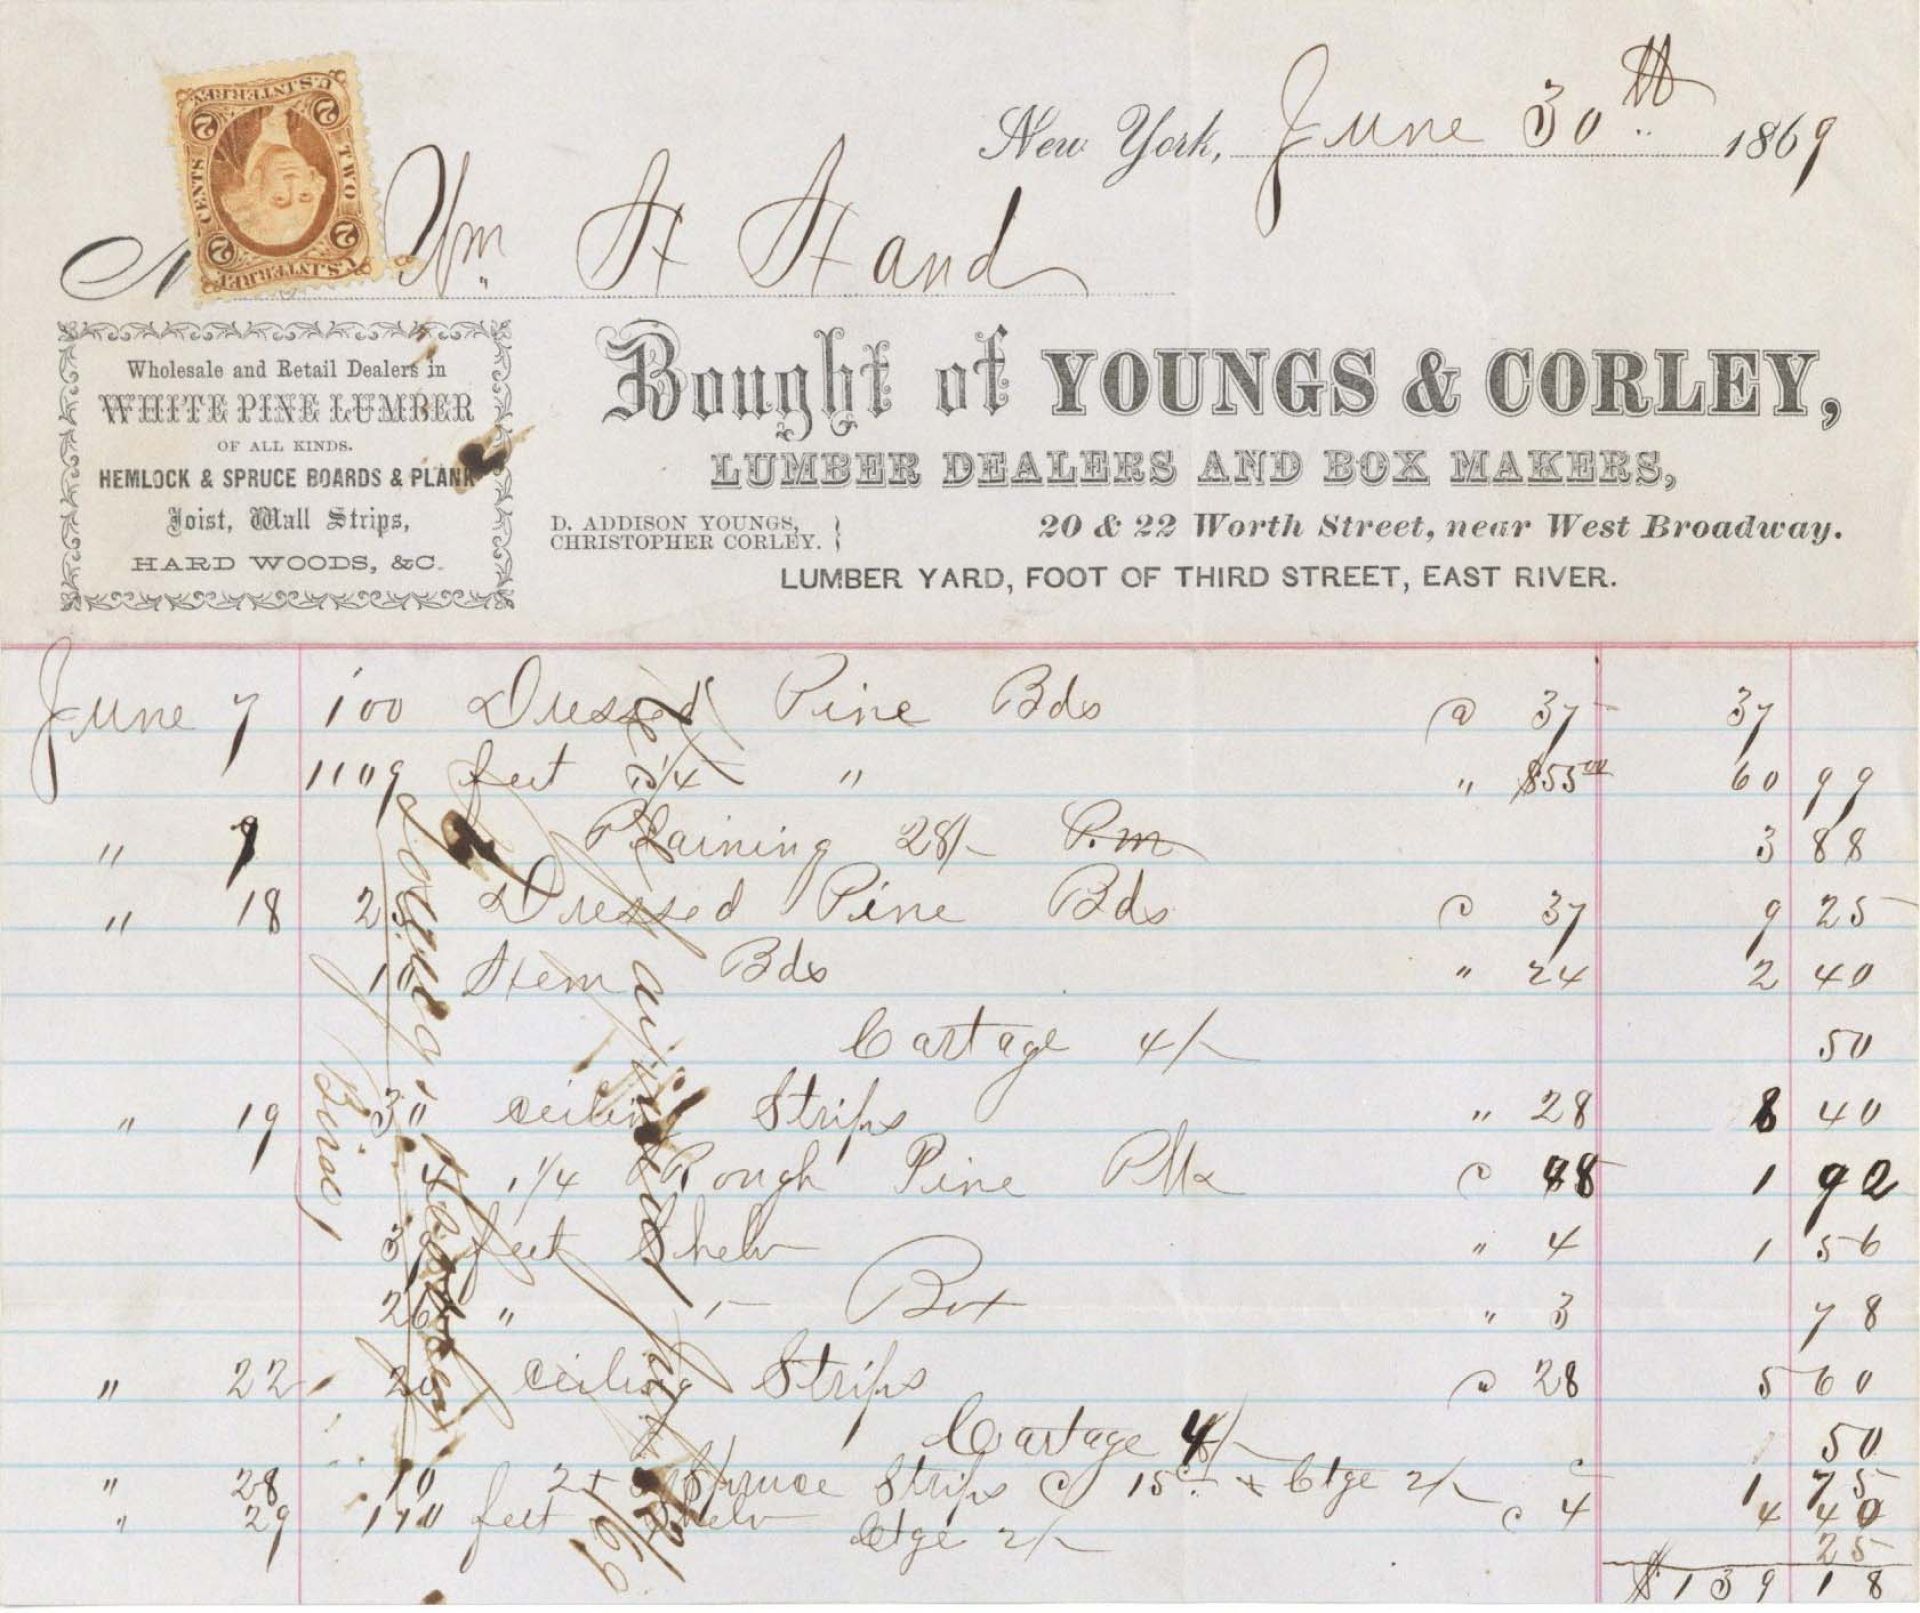 U.S. INTER. REV.
2 2
TWO CENTS
2 2
U.S. INTER. REV.
New York, June 30th 1869
M Wm H Hand
Bought of YOUNGS & CORLEY,
LUMBER DEALERS AND BOX MAKERS,
D. ADDISON YOUNGS,
CHRISTOPHER CORLEY.
20 & 22 Worth Street, near West Broadway.
LUMBER YARD, FOOT OF THIRD STREET, EAST RIVER.
Wholesale and Retail Dealers in
WHITE PINE LUMBER
OF ALL KINDS.
HEMLOCK & SPRUCE BOARDS & PLANK
Joist, Wall Strips,
HARD WOODS, &C.
June 7 100 Dressed Pine Bds @ 37 37
1109 feet 5/4 " " $55.00 60 99
" 9 Plaining 28/- P.m 3 88
" 18 25 Dressed Pine Bds @ 37 9 25
10 Hem Bds " 24 2 40
Cartage 4/- 50
" 19 30 ceiling Strips " 28 8 40
4 1 1/4 Rough Pine Plk @ 48 1 92
39 feet Shelv " 4 1 56
26 " " 3 78
" 22 20 ceiling Strips @ 28 5 60
Cartage 4/- 50
" 28 10 Spruce Strips @ 15c + Ctge 2/- 1 75
" 29 110 feet Shelv @ 4 4 40
Ctge 2/- 25
$139 18